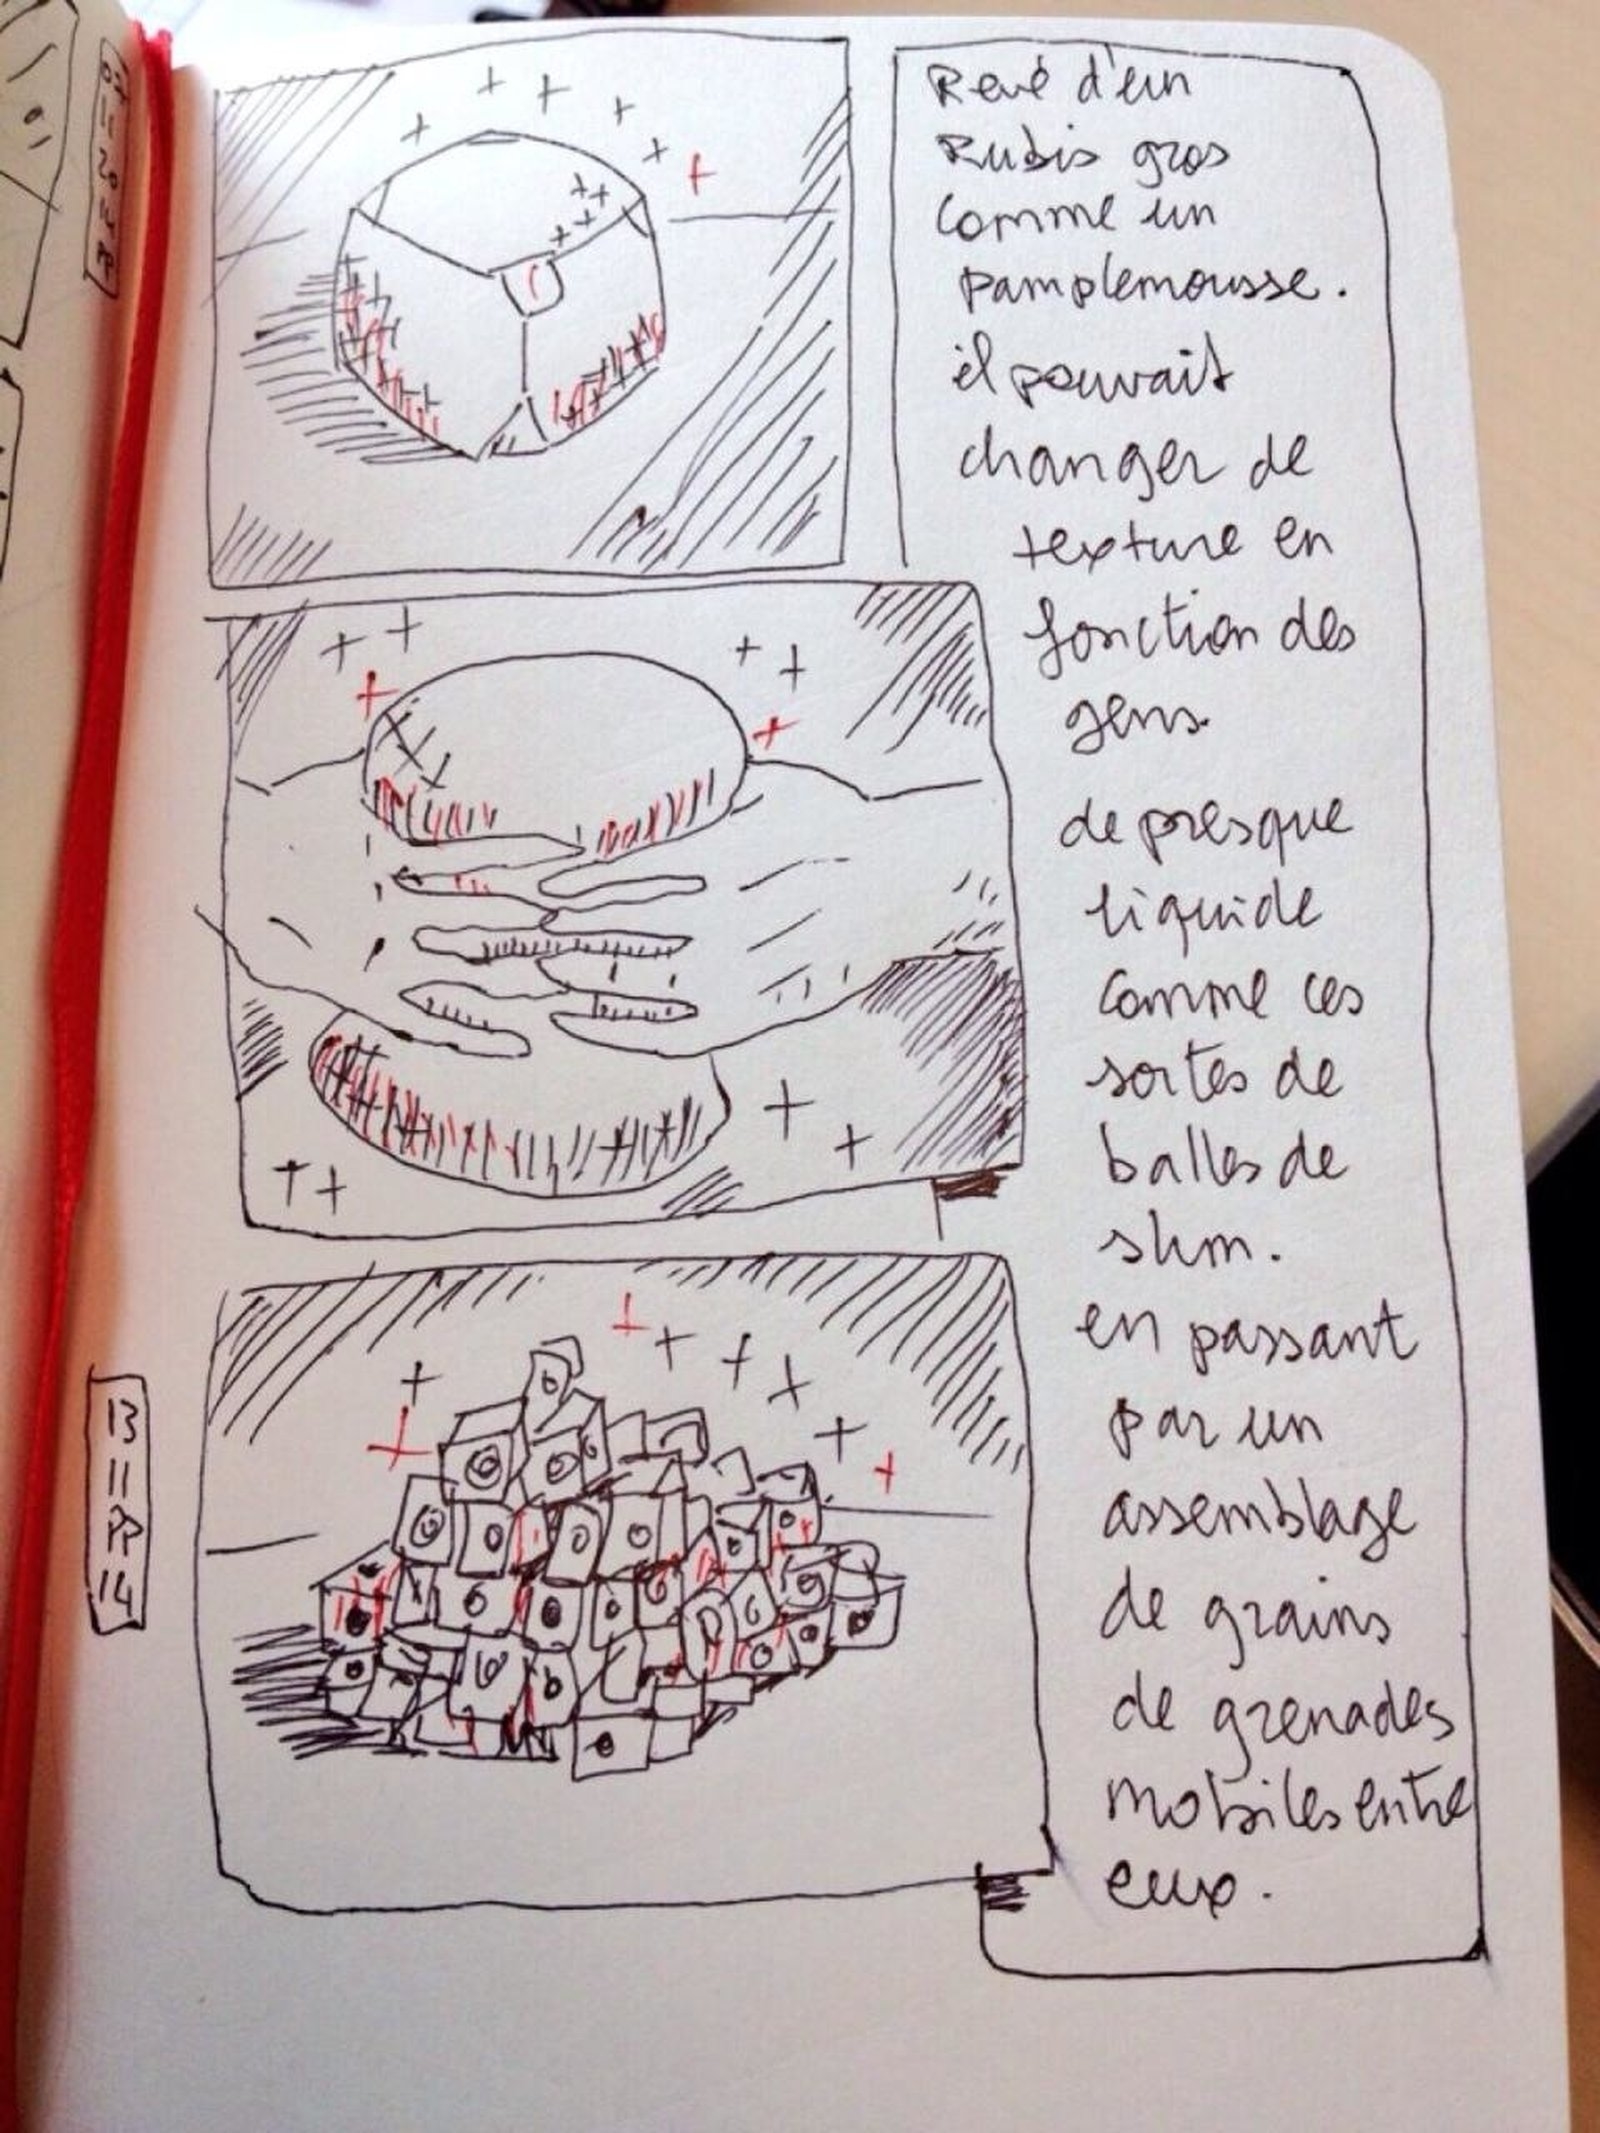 Revé d'un
Rubis gros
comme un
pamplemousse.
il pouvait
changer de
texture en
fonction des
gens.
de presque
liquide
comme ces
sortes de
balles de
slim.
en passant
par un
assemblage
de grains
de grenades
mobiles entre
eux.